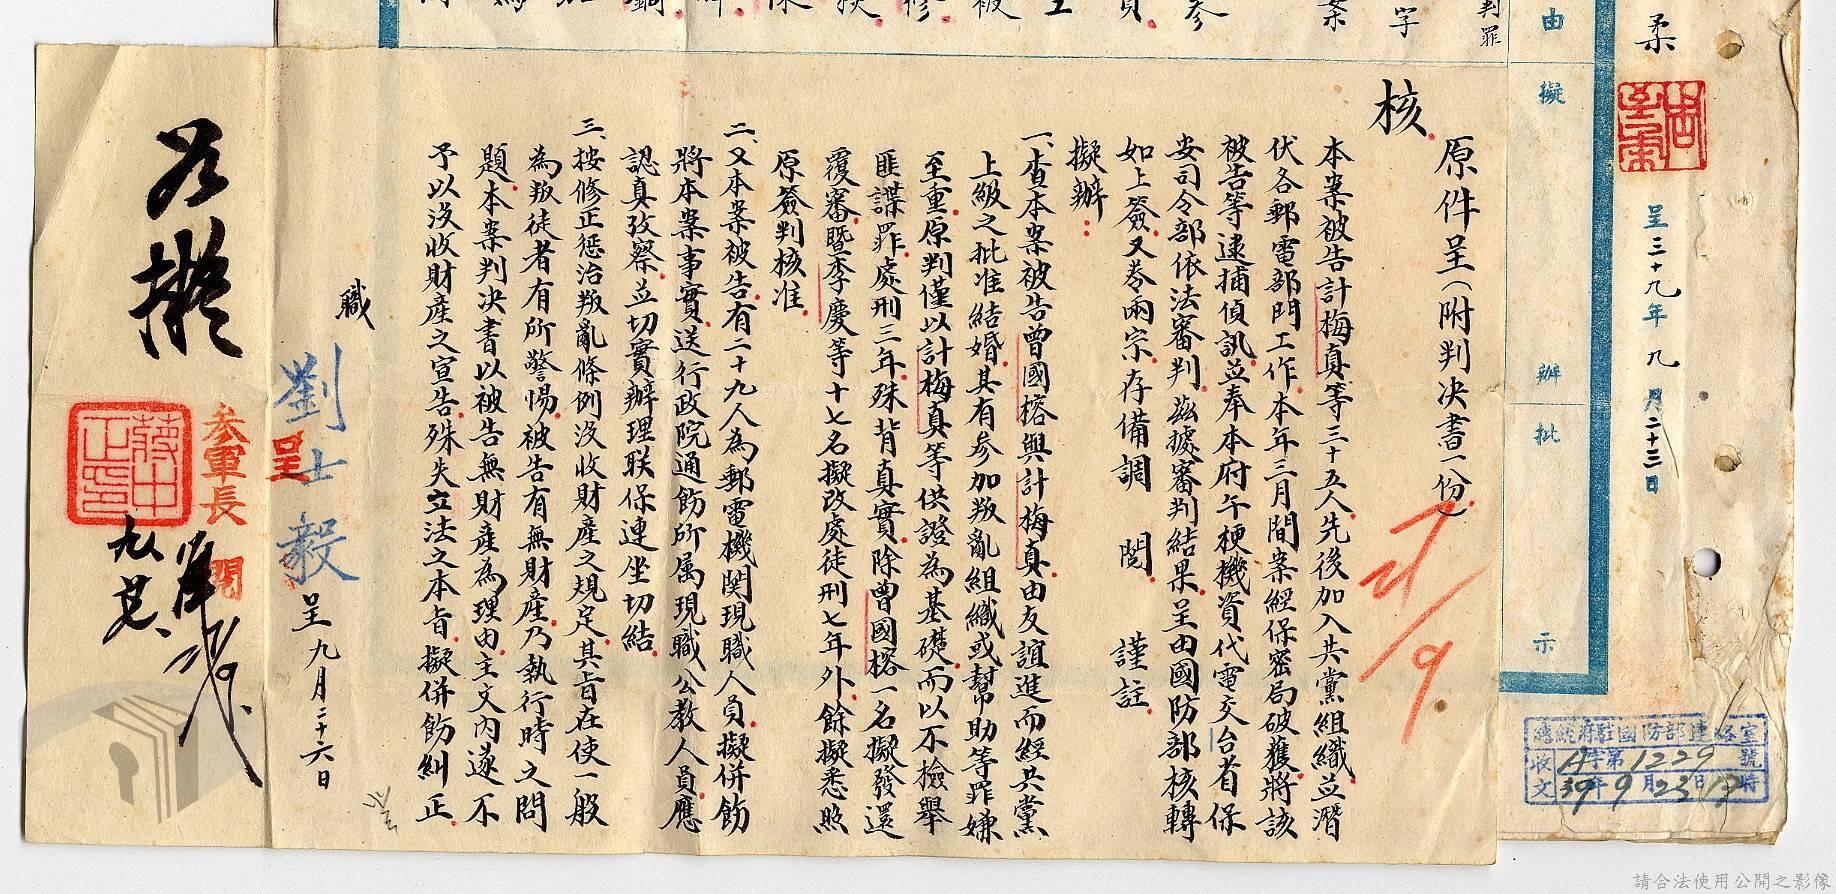 柔
呈三十九年九月二十三日
由
擬
辦
批
示
判罪
字
案
核
原件呈(附判决書一份)
本案被告計梅真等三十五人先後加入共黨組織並潛
伏各郵電部門工作本年三月間案經保密局破獲將該
被告等逮捕偵訊並奉本府午梗機資代電交台省保
安司令部依法審判茲據審判結果呈由國防部核轉
如上簽又卷兩宗存備調閱謹註
擬辦:
一、查本案被告曾國榕與計梅真由友誼進而經共黨
上級之批准結婚其有參加叛亂組織或幫助等罪嫌
至重原判僅以計梅真等供證為基礎而以不檢舉
匪諜罪處刑三年殊背真實除曾國榕一名擬發還
覆審暨李慶等十七名擬改處徒刑七年外餘擬悉照
原簽判核准
二、又本案被告有二十九人為郵電機関現職人員擬併飭
將本案事實送行政院通飭所属現職公教人員應
認真攷察並切實辦理联保連坐切結
三、按修正惩治叛亂條例没收財產之規定其旨在使一般
為叛徒者有所警惕被告有無財產乃執行時之問
題本案判决書以被告無財產為理由主文內遂不
予以没收財產之宣告殊失立法之本旨擬併飭糾正
職
劉士毅
呈
呈九月二十六日
參軍長
閱
如擬
蔣中正印
總統府駐國防部連絡室
收文
A字第1229號
39年9月23日17時
請合法使用公開之影像